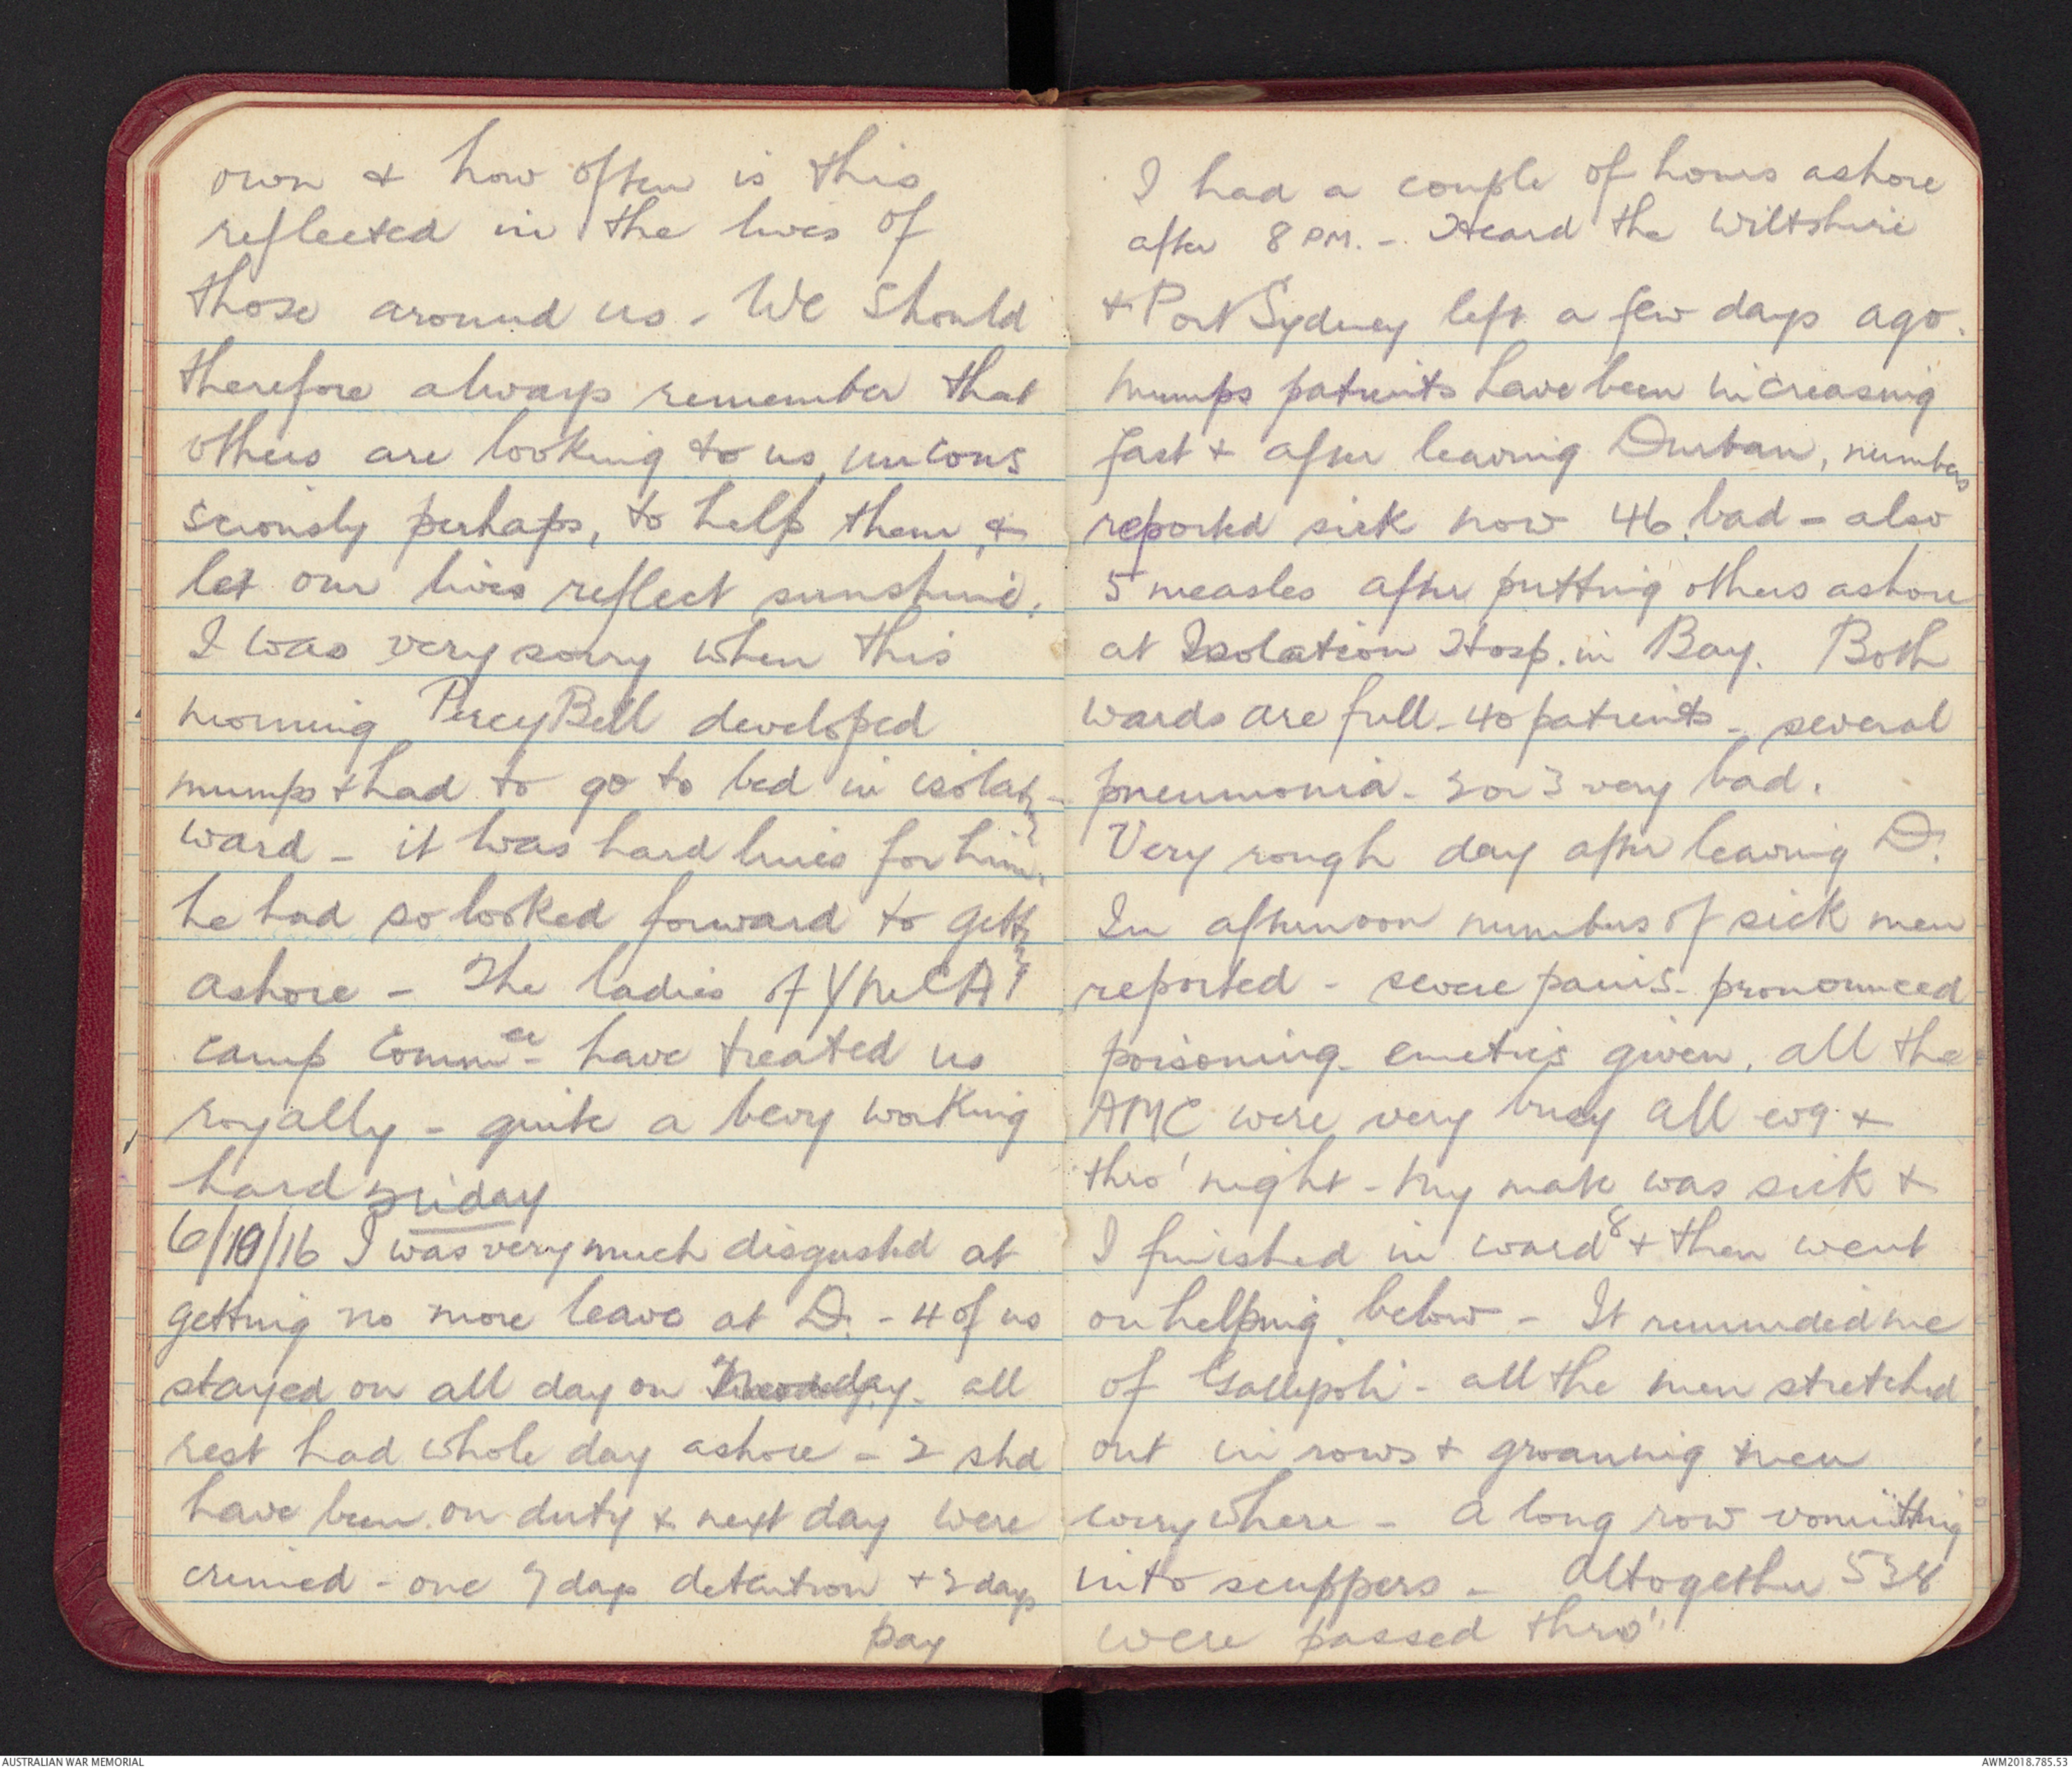 own & how often is this
reflected in the lives of
those around us. We should
therefore always remember that
others are looking to us, uncons
sciously perhaps, to help them, &
let our lives reflect sunshine.
I was very sorry when this
morning Percy Bell developed
mumps & had to go to bed in isolatn
ward - it was hard lines for him.
he had so looked forward to gettg
ashore - The ladies of YMCA
camp Commee have treated us
royally - quite a bevy working
hard Friday
6/10/16 I was very much disgusted at
getting no more leave at D. - 4 of us
stayed on all day on all
rest had whole day ashore - 2 shd
have been on duty & next day were
crimed - one 7 days detention + 2 days
pay
I had a couple of hours ashore
after 8 PM. - Heard the Wiltshire
& Port Sydney left a few days ago.
Mumps patients have been increasing
fast & after leaving Durban, numbers
reported sick now 46 bad - also
5 measles after putting others ashore
at Isolation Hosp. in Bay. Both
wards are full - 40 patients - several
pneumonia - 2 or 3 very bad.
Very rough day after leaving D.
In afternoon numbers of sick men
reported - severe pains - pronounced
poisoning - emetics given, all the
AMC were very busy all evg &
thro' night - My mate was sick &
I finished in ward 8 & then went
on helping below - It reminded me
of Gallipoli - all the men stretched
out in rows & groaning men
everywhere - A long row vomitting
into scuppers - Altogether 538
were passed thro'
AUSTRALIAN WAR MEMORIAL
AWM2018.785.53